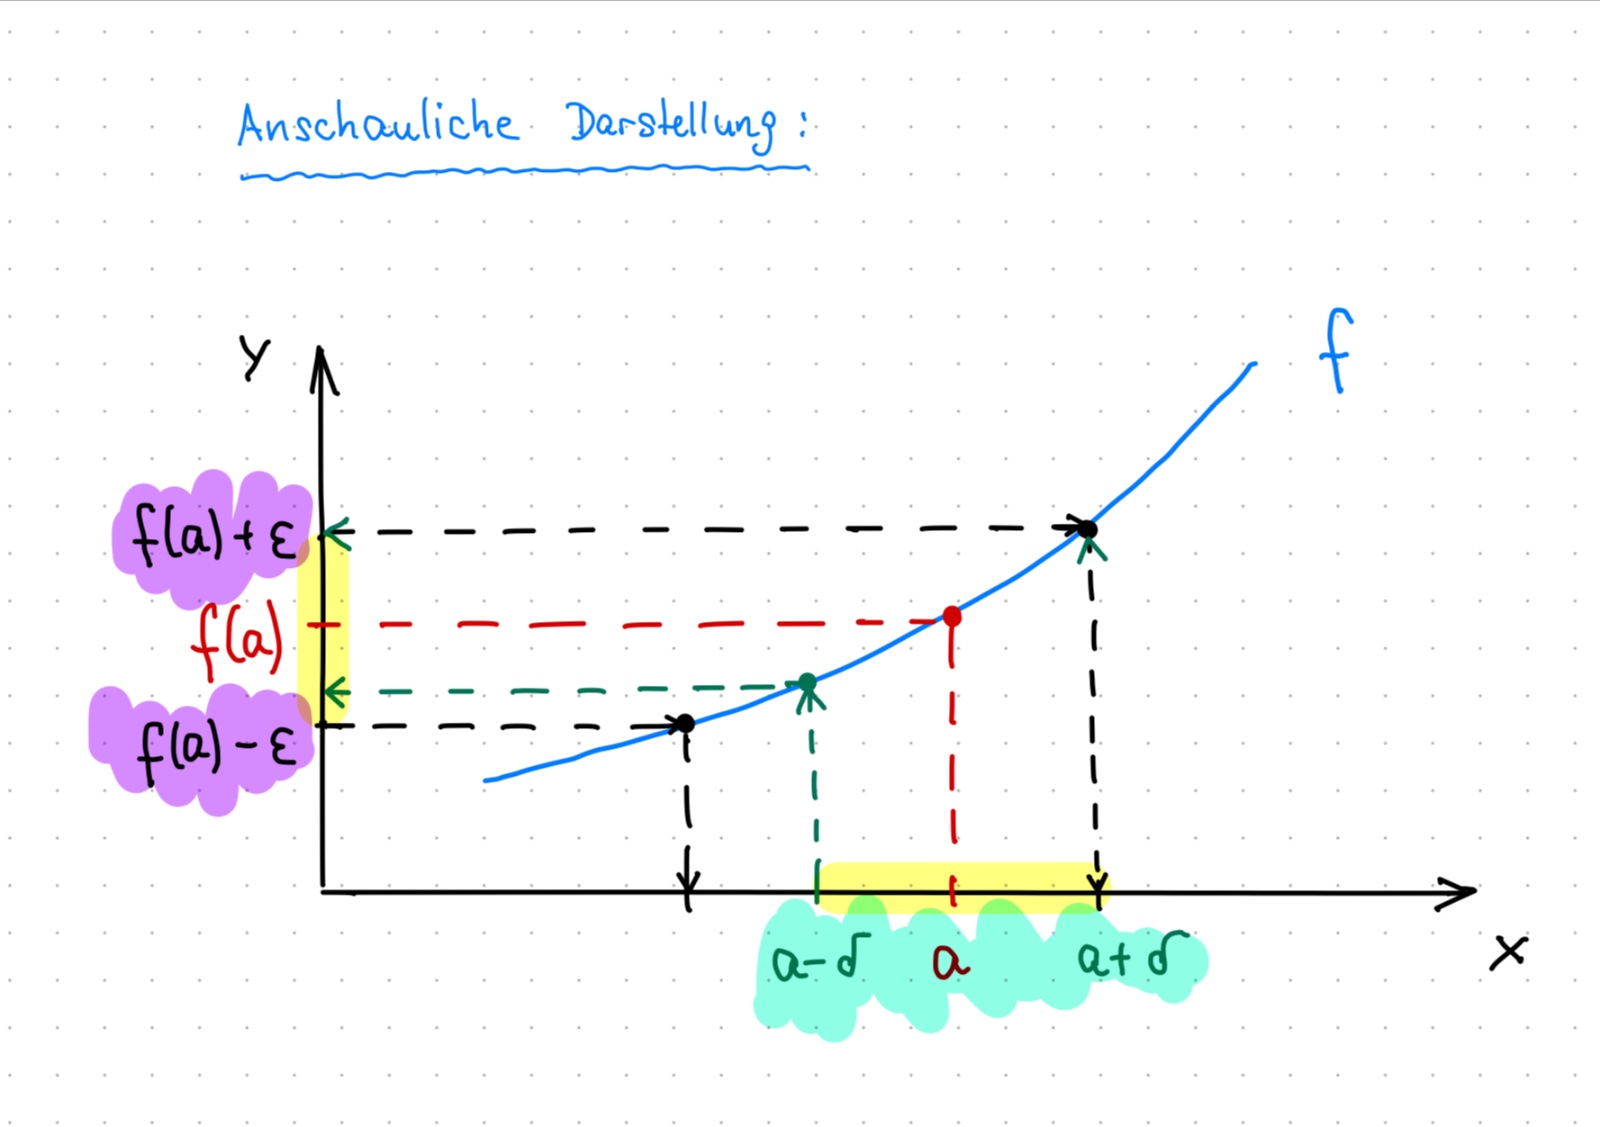 Anschauliche Darstellung:
f
y
f(a)+ε
f(a)
f(a)-ε
a-δ a a+δ
x